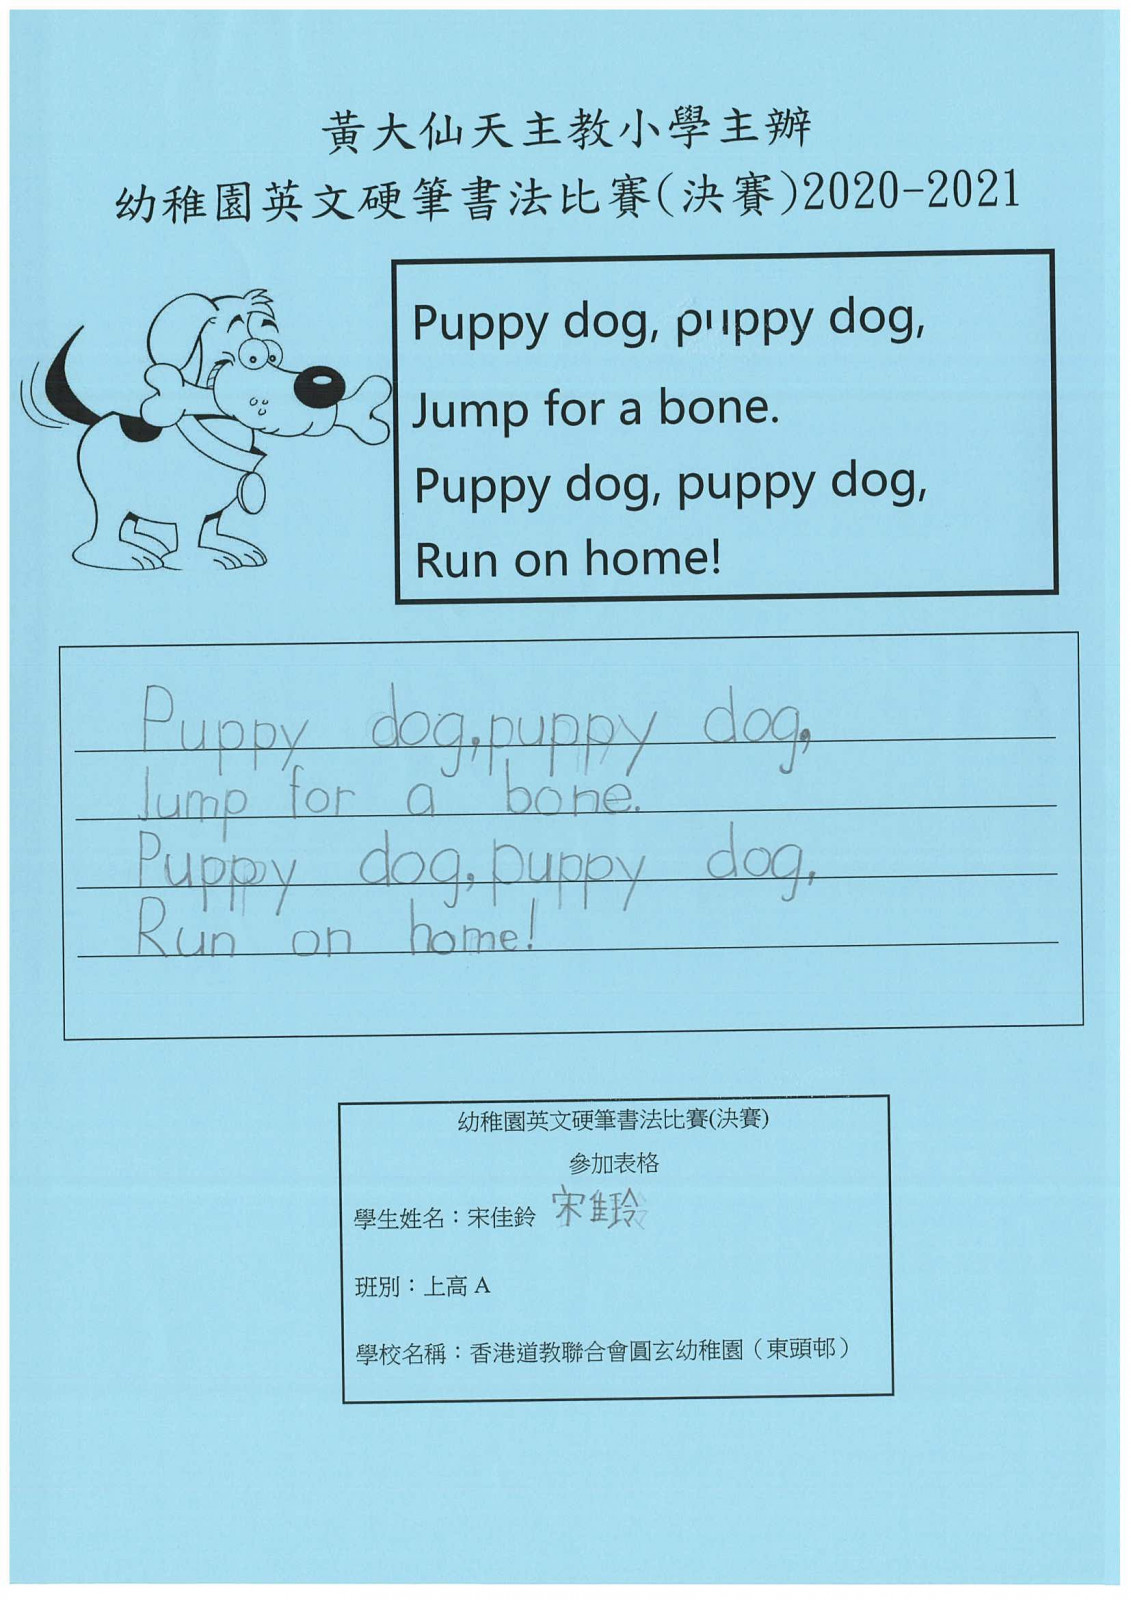 黃大仙天主教小學主辦
幼稚園英文硬筆書法比賽(決賽)2020-2021
Puppy dog, puppy dog,
Jump for a bone.
Puppy dog, puppy dog,
Run on home!
Puppy dog, puppy dog,
Jump for a bone.
Puppy dog, puppy dog,
Run on home!
幼稚園英文硬筆書法比賽(決賽)
參加表格
學生姓名：宋佳鈴 宋佳玲
班別：上高 A
學校名稱：香港道教聯合會圓玄幼稚園（東頭邨）